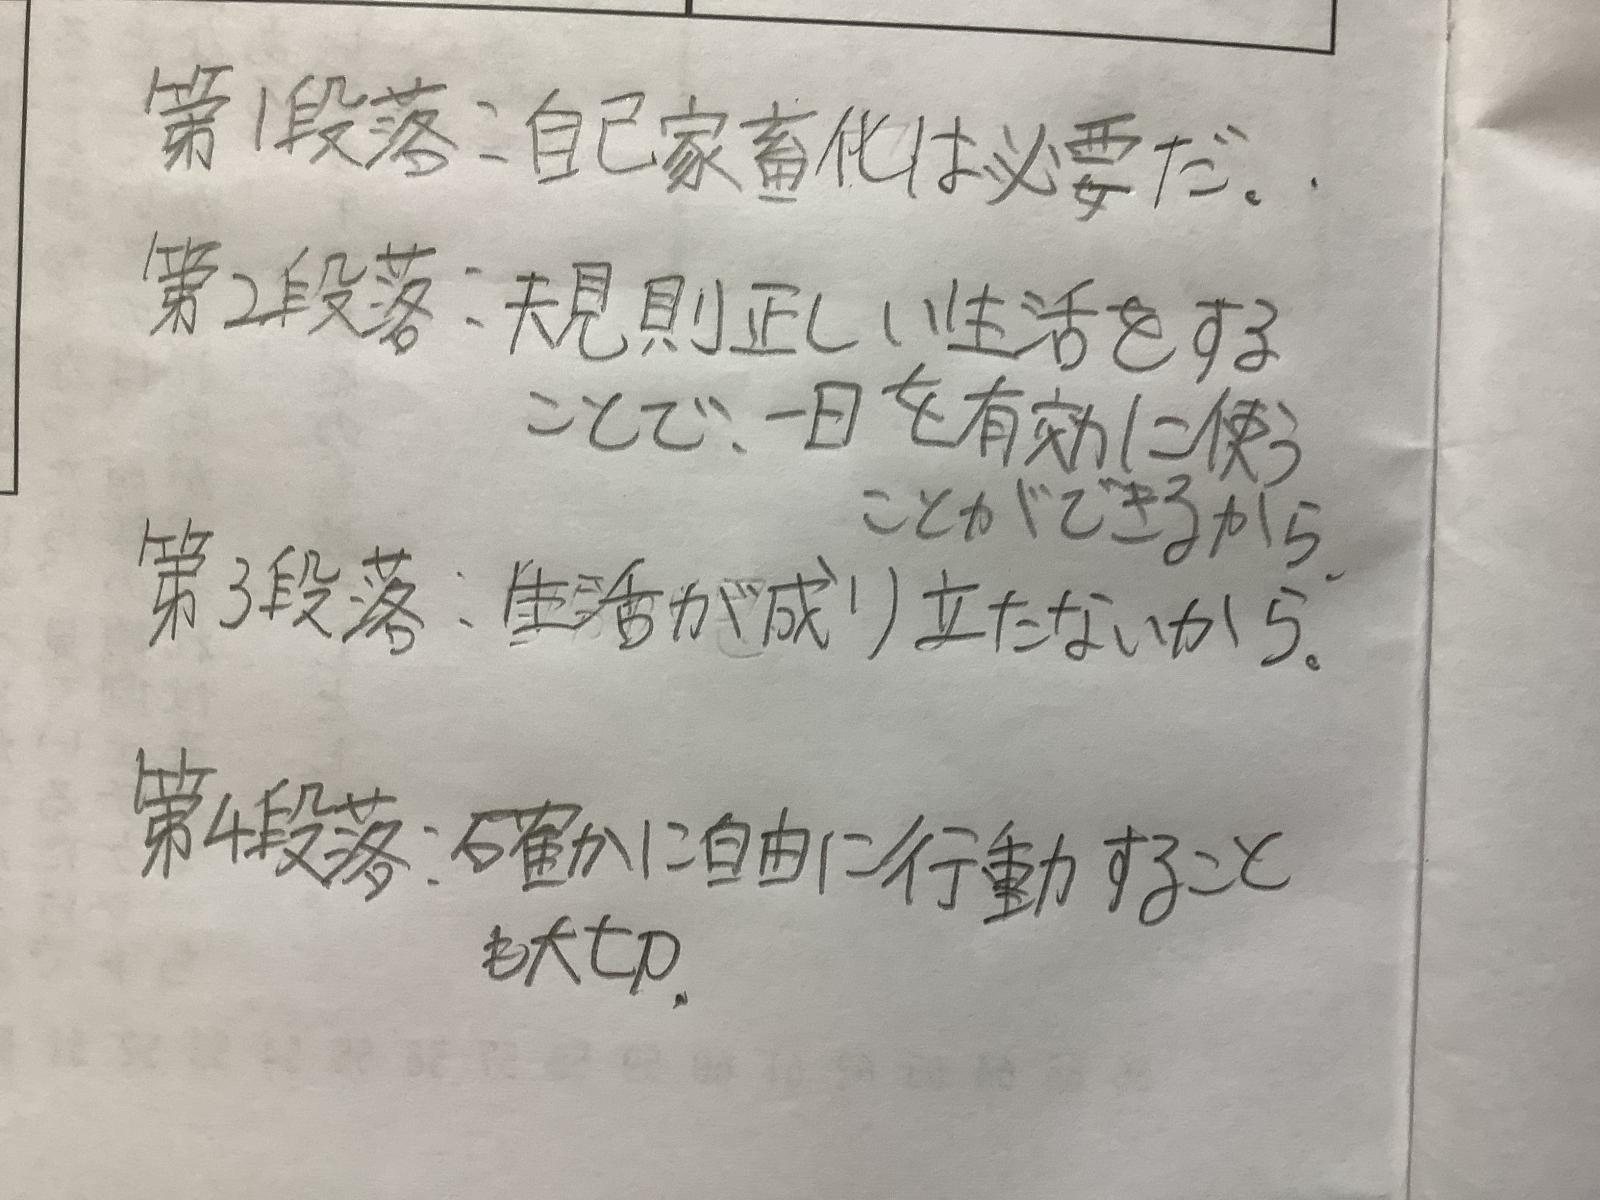 第1段落：自己家畜化は必要だ。
第2段落：規則正しい生活をする
ことで、一日を有効に使う
ことができるから.
第3段落：生活が成り立たないから。
第4段落：確かに自由に行動すること
も大切.